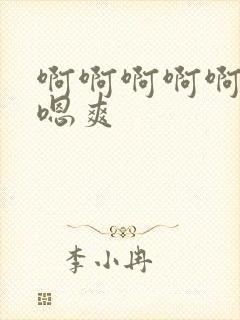 啊啊啊啊啊
嗯爽
李小冉